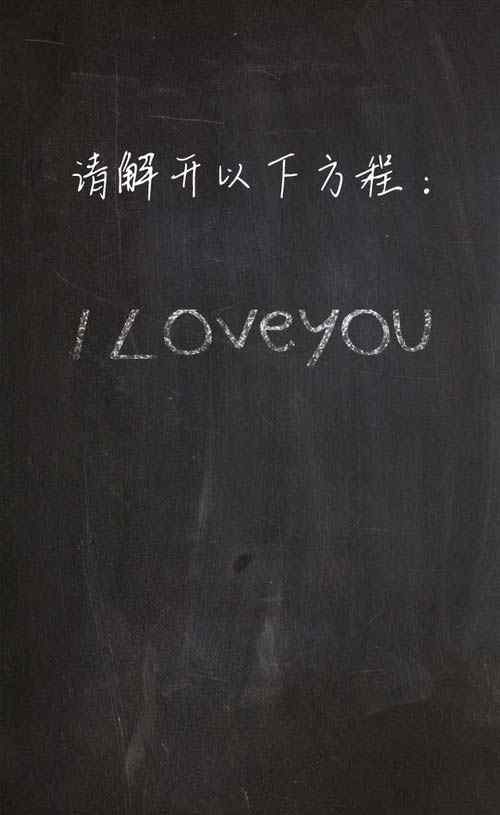 请解开以下方程：
I LOveyOU